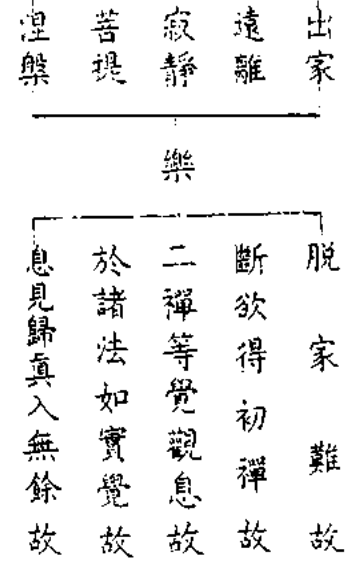 出家
遠離
寂靜
菩提
涅槃
樂
脫家難故
斷欲得初禪故
二禪等覺觀息故
於諸法如實覺故
息見歸真入無餘故